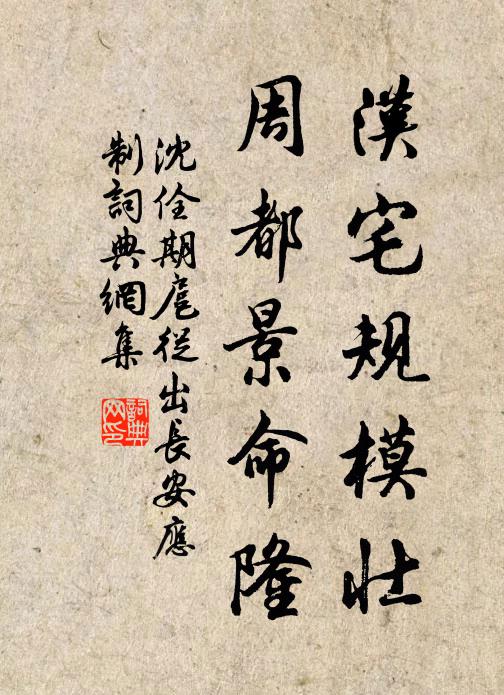 漢宅規模壯
周都景命隆
沈佺期扈從出長安應
制詞典網集
詞典
网印